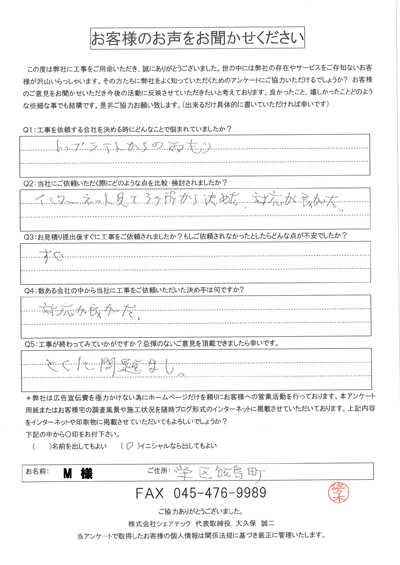 お客様のお声をお聞かせください
この度は弊社に工事をご用命いただき、誠にありがとうございました。世の中には弊社の存在やサービスをご存知ないお客
様が沢山いらっしゃいます。その方たちに弊社をよく知っていただくためのアンケートにご協力いただけるでしょうか? お客様
のご意見をお聞かせいただき今後の活動に反映させていただきたいと考えております。良かったこと、嬉しかったことどのよう
な些細な事でも結構です。是非ご協力お願い致します。(出来るだけ具体的に書いていただければ幸いです)
Q1:工事を依頼する会社を決める時にどんなことで悩まれていましたか?
トップライトからの雨もり
Q2:当社にご依頼いただく際にどのような点を比較・検討されましたか?
インターネット見て3ヶ所から決めた、対応が良かった。
Q3:お見積り提出後すぐに工事をご依頼されましたか?もしご依頼されなかったとしたらどんな点が不安でしたか?
すぐ
Q4:数ある会社の中から当社に工事をご依頼いただいた決め手は何ですか?
対応が良かった。
Q5:工事が終わってみていかがですか?忌憚のないご意見を頂戴できましたら幸いです。
とくに問題なし。
*弊社は広告宣伝費を極力かけない為にホームページだけを頼りにお客様への営業活動を行っております。本アンケート
用紙またはお客様宅の調査風景や施工状況を随時ブログ形式のインターネットに掲載させていただいております。上記内容
をインターネットや印刷物に掲載させていただいてもよろしいでしょうか?
下記の中から〇印をお付下さい。
( )名前を出してもよい (〇)イニシャルなら出してもよい
お名前: M 様 ご住所: 栄区飯島町
FAX 045-476-9989
ご協力ありがとうございました。
株式会社シェアテック 代表取締役 大久保 誠二
当アンケートで取得したお客様の個人情報は関係法規に基づき厳正に管理いたします。